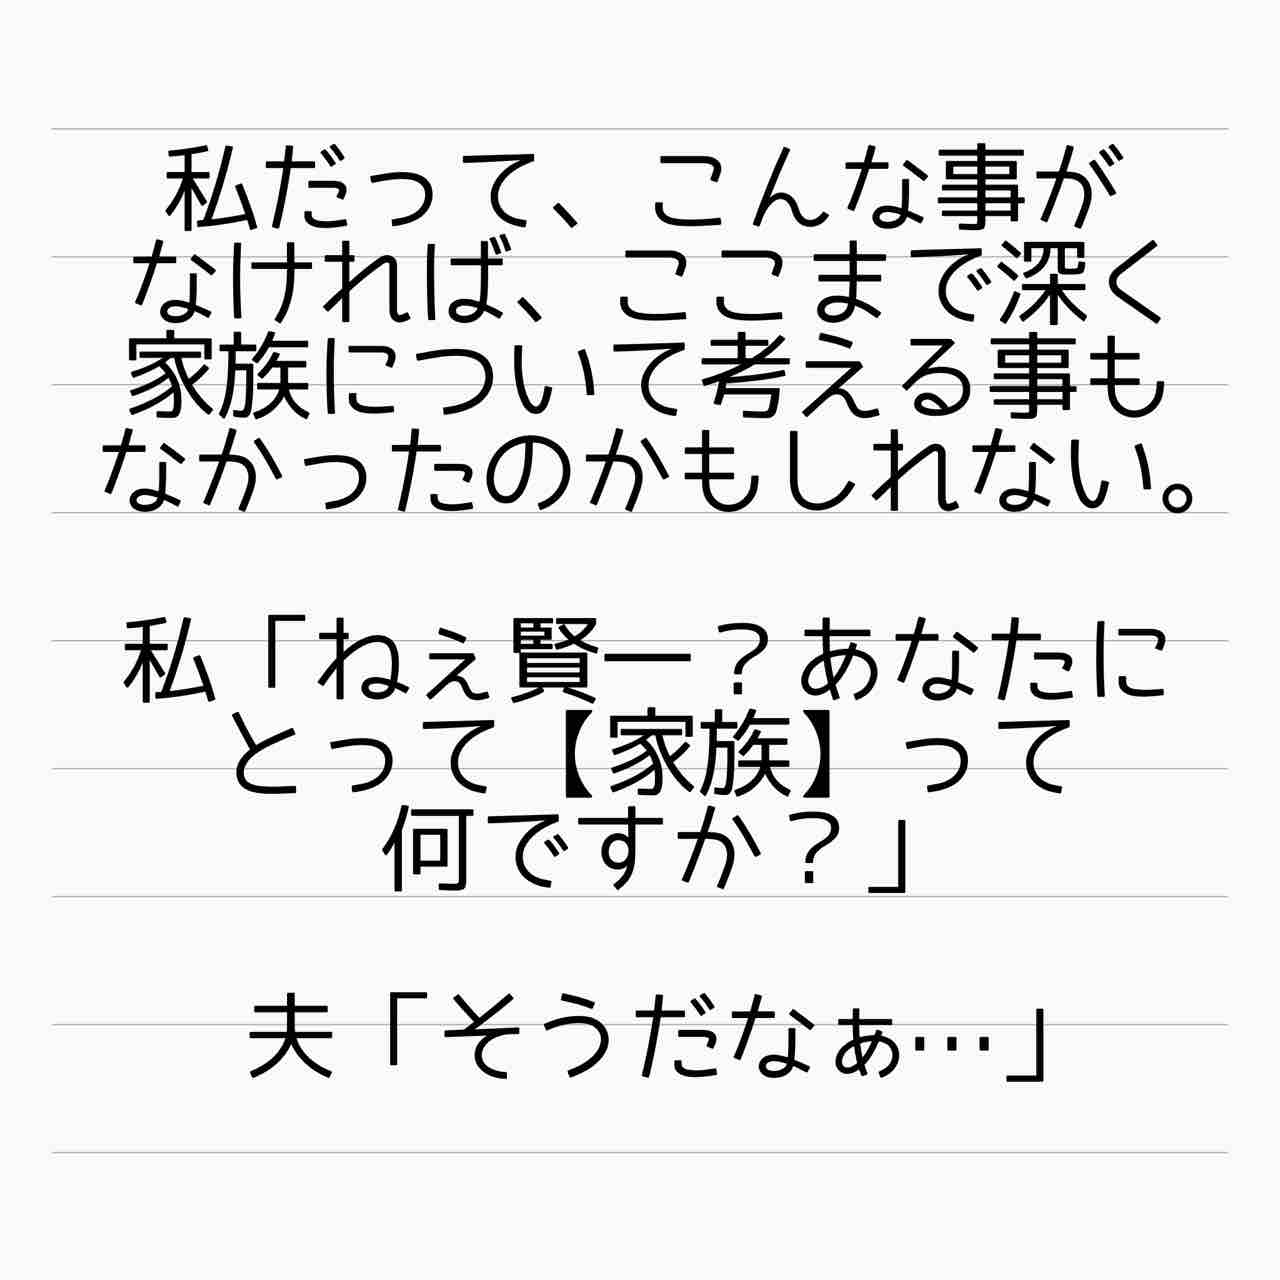 私だって、こんな事が
なければ、ここまで深く
家族について考える事も
なかったのかもしれない。
私「ねぇ賢一？あなたに
とって【家族】って
何ですか？」
夫「そうだなぁ…」